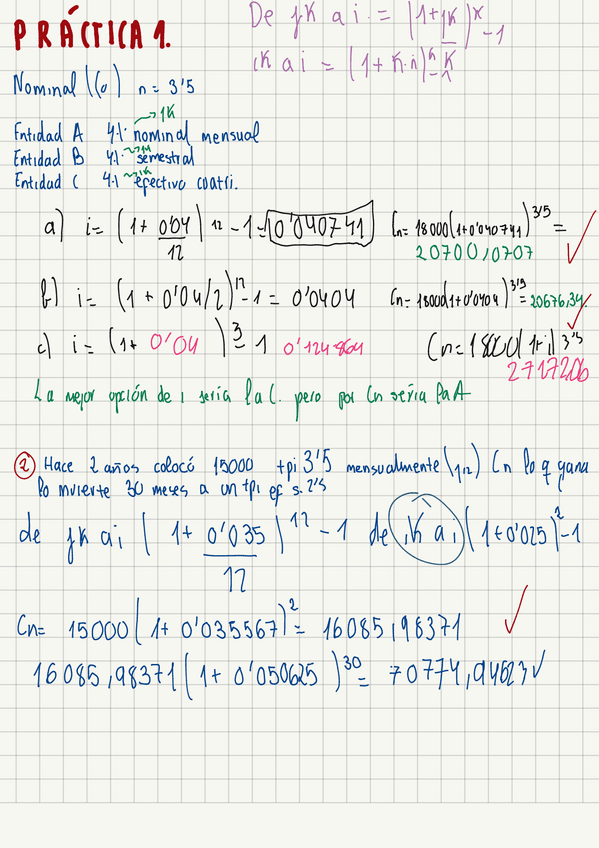 De jk a i. = (1+jk/k)^k -1
PRÁCTICA 1.
ik a i = (1+k.i)
Nominal (Co) n = 3'5
1k
Entidad A 4% nominal mensual
Entidad B 4% semestral
Entidad C 4% efectivo cuatri.
a) i= (1+ 0'04/12)^12 -1 = 0'040741 Cn= 18000(1+0'040741)^3'5 =
20700,0707
b) i= (1+0'04/2)^12 -1 = 0'0404 Cn= 18000(1+0'0404)^3'5 = 20676,34.
c) i= (1+ 0'04)^3 - 1 0'124864 Cn=18000(1+i)^3'5
2717206
La mejor opción de i sería la C. pero por Cn sería la A
2 Hace 2 años colocó 15000 tpi 3'5 mensualmente (j12) Cn lo q gana
lo invierte 30 meses a un tpi ef s. 2'5
de jk a i (1+ 0'035/12)^12 -1 de ik a i (1+0'025)^2 -1
Cn= 15000(1+ 0'035567)^2 = 16085,98371
16085,98371(1+ 0'050625)^30 = 70774,94623